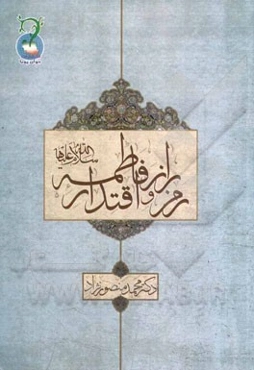 جوان پویا
رمز و راز اقتدار فاطمه سلام الله علیها
دکتر محمد منصورنژاد